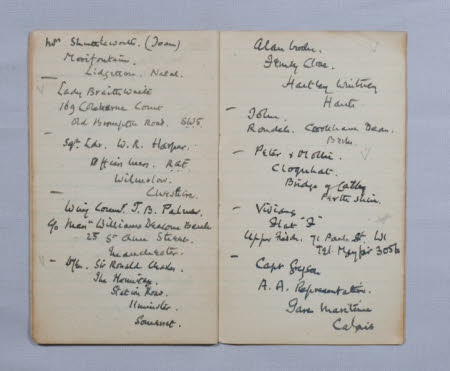 Mrs Shuttleworth. (Joan)
Mooifontein.
Lidgetton. Natal.
Lady Braithwaite
169 Coleherne Court
Old Brompton Road. SW5
Sqn Ldr. W. R. Harper.
Officers Mess. RAF
Wilmslow.
Cheshire.
Wing Comdr. T. B. Palmer.
c/o Man" Williams Deacons Bank
St Anns Street.
Manchester.
Sir Ronald
The
Station Road.
Ilminster.
Somerset.
Alan
Close.
Hartley Wintney
Hants
John.
Cookham Dean.
Berks.
Peter & Mollie.
Bridge of Cally
Perthshire.
Viviane
Flat "F"
71 Park St. W1
Tel. Mayfair 3056
Capt
A. A. Representative.
Gare Maritime
Calais